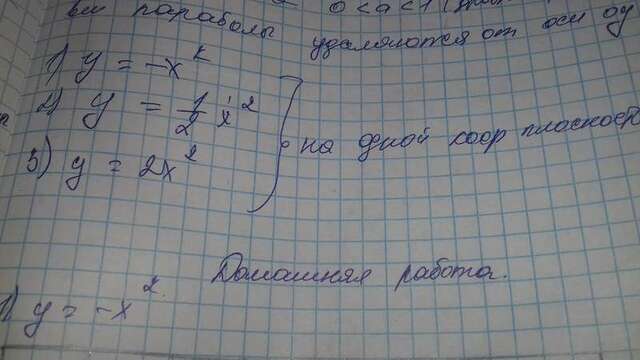 параболы 0<a<1
удаляются от оси oy
1) y = -x²
2) y = 1/2 x²
3) y = 2x²
на одной коор плоскости
Домашняя работа.
1) y = -x²